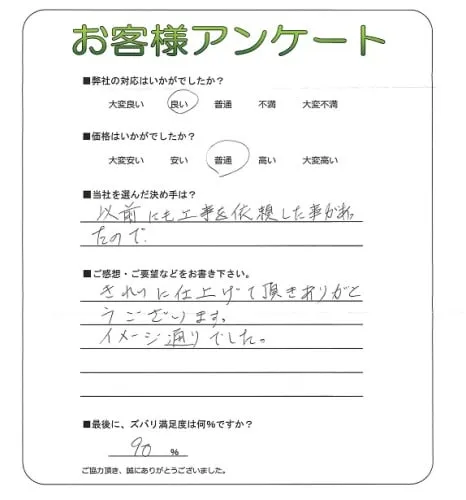 お客様アンケート
■弊社の対応はいかがでしたか？
大変良い 良い 普通 不満 大変不満
■価格はいかがでしたか？
大変安い 安い 普通 高い 大変高い
■当社を選んだ決め手は？
以前にも工事を依頼した事があっ
たので
■ご感想・ご要望などをお書き下さい。
きれいに仕上げて頂きありがと
うございます。
イメージ通りでした。
■最後に、ズバリ満足度は何％ですか？
90 ％
ご協力頂き、誠にありがとうございました。